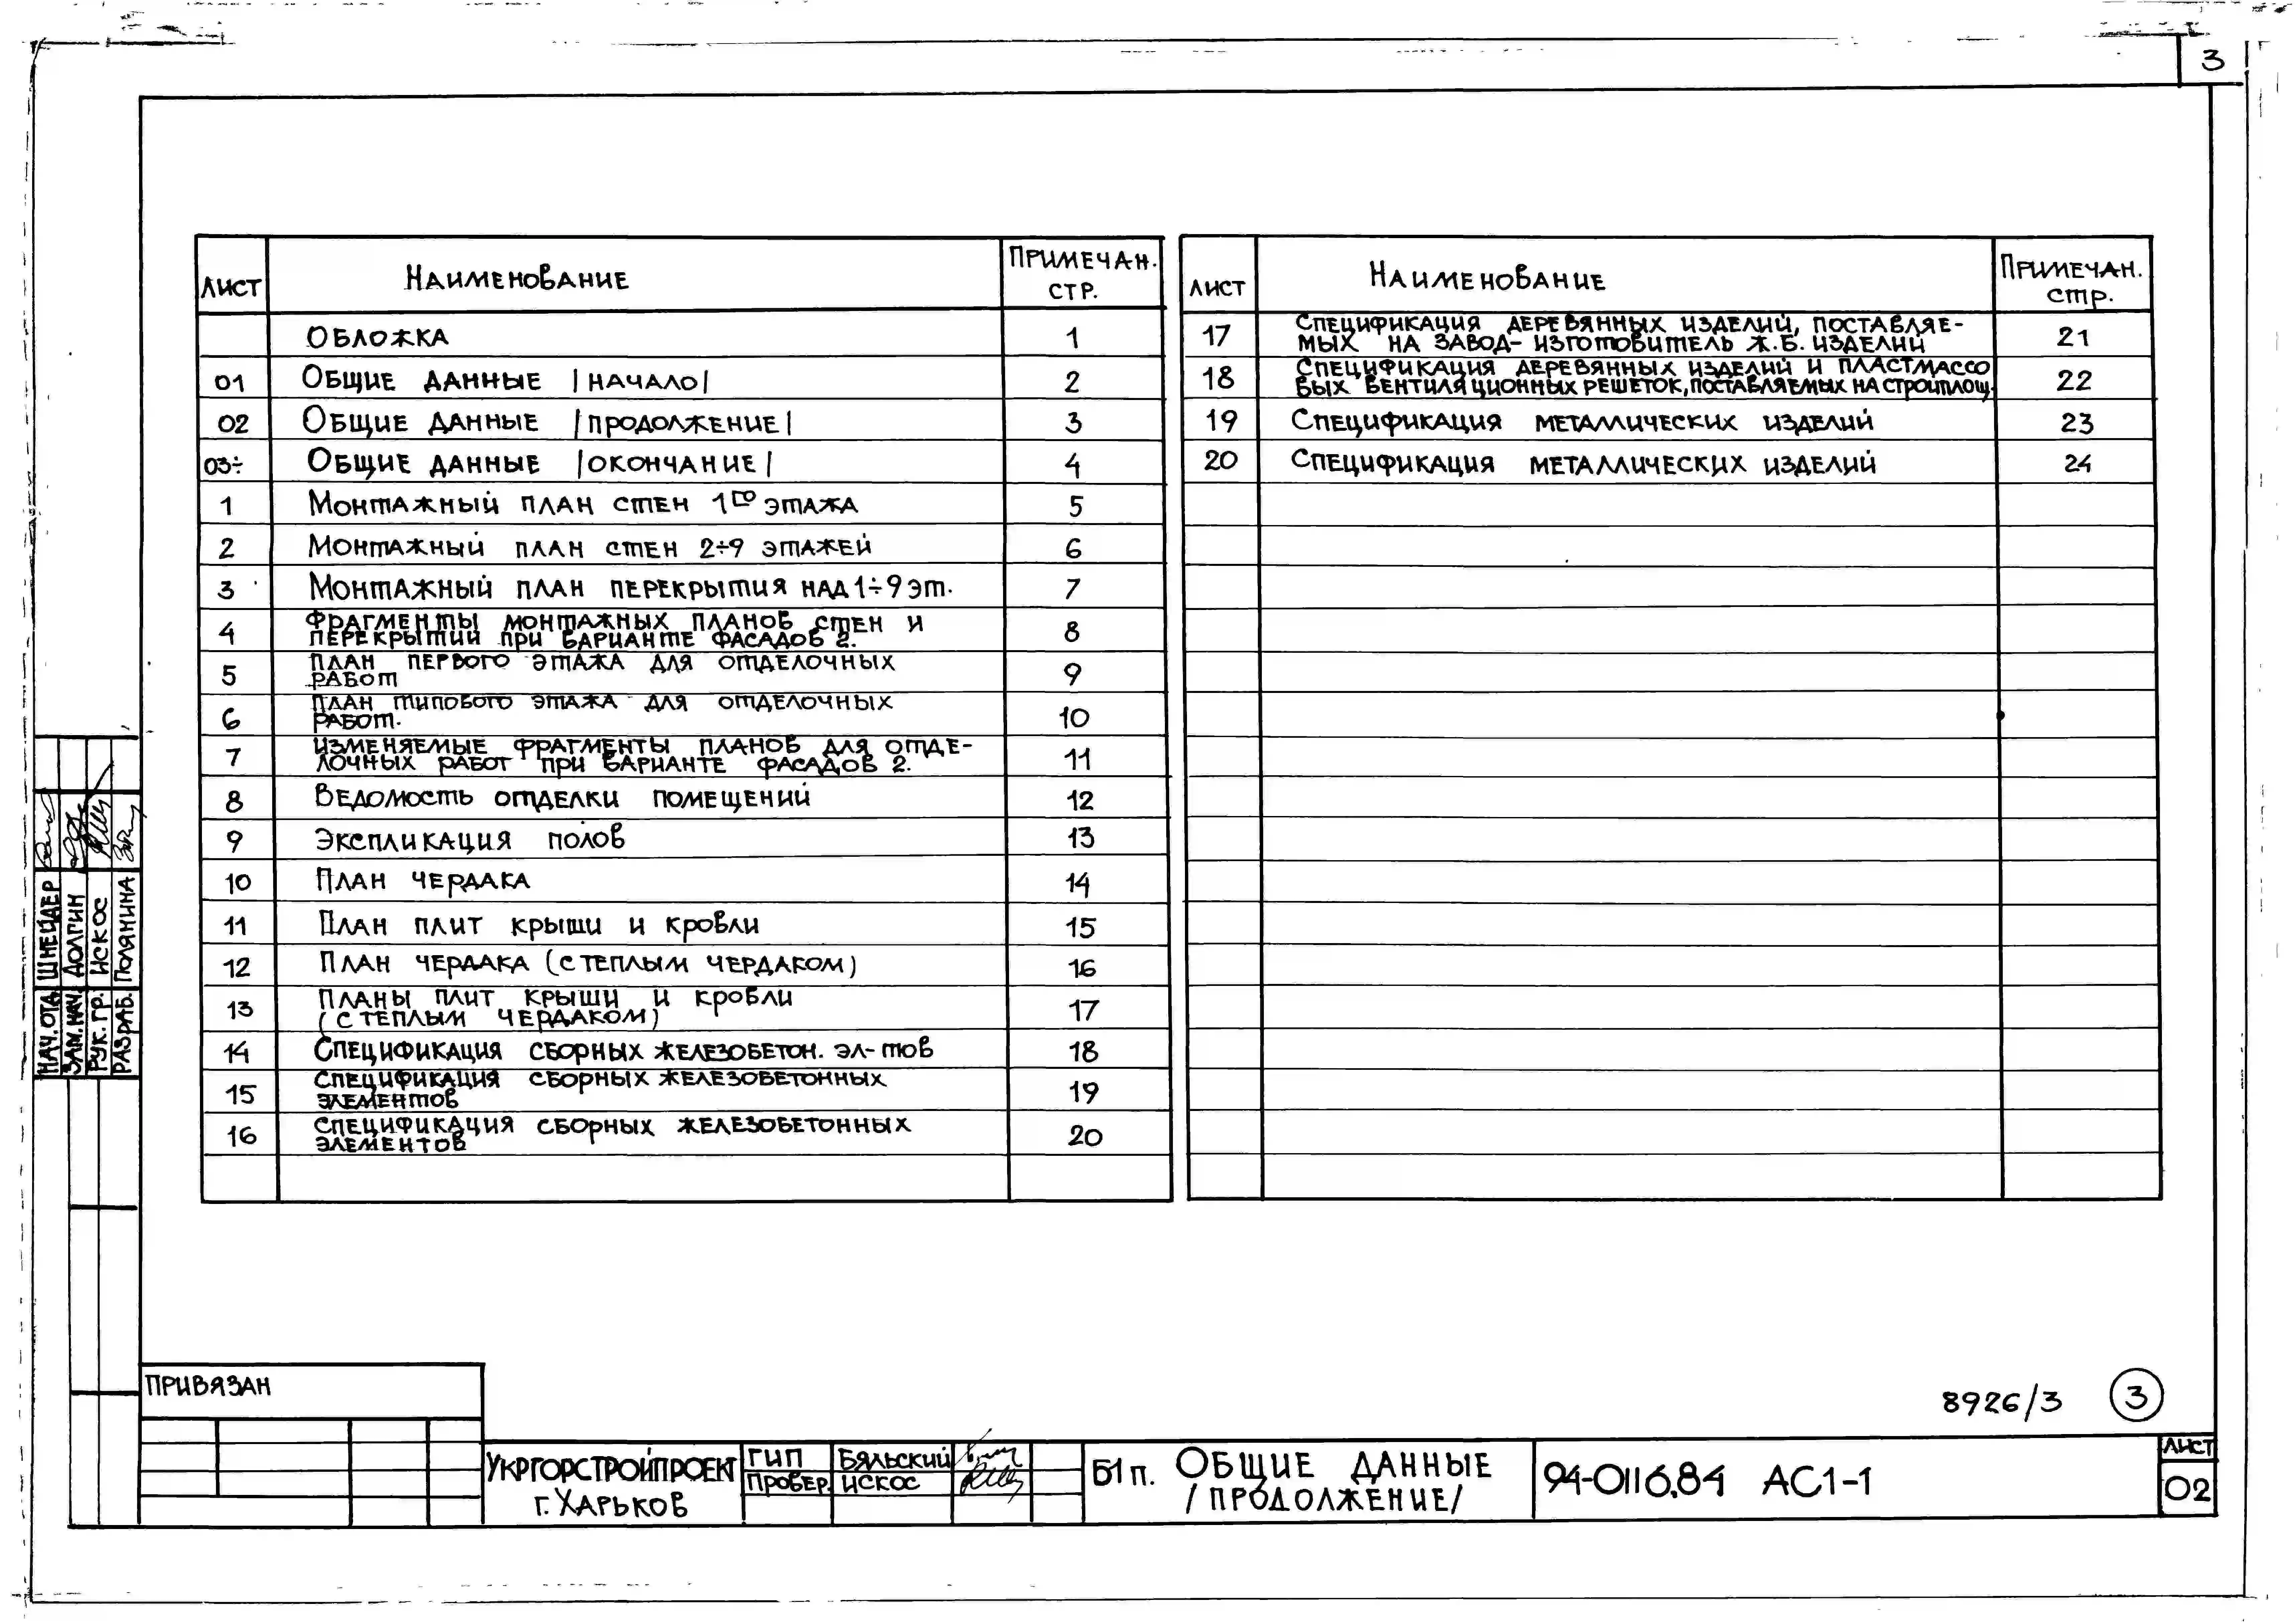 3
Лист Наименование Примечан. стр.
Обложка 1
01 Общие данные |начало| 2
02 Общие данные |продолжение| 3
03÷ Общие данные |окончание| 4
1 Монтажный план стен 1го этажа 5
2 Монтажный план стен 2÷9 этажей 6
3 Монтажный план перекрытия над 1÷9 эт. 7
4 Фрагменты монтажных планов стен и
перекрытий при варианте фасадов 2. 8
5 План первого этажа для отделочных
работ 9
6 План типового этажа для отделочных
работ. 10
7 Изменяемые фрагменты планов для отде-
лочных работ при варианте фасадов 2. 11
8 Ведомость отделки помещений 12
9 Экспликация полов 13
10 План чердака 14
11 План плит крыши и кровли 15
12 План чердака (с теплым чердаком) 16
13 Планы плит крыши и кровли
(с теплым чердаком) 17
14 Спецификация сборных железобетон. эл-тов 18
15 Спецификация сборных железобетонных
элементов 19
16 Спецификация сборных железобетонных
элементов 20
Лист Наименование Примечан. стр.
17 Спецификация деревянных изделий, поставляе-
мых на завод-изготовитель ж.б. изделий 21
18 Спецификация деревянных изделий и пластмассо
вых вентиляционных решеток, поставляемых на стройплощ. 22
19 Спецификация металлических изделий 23
20 Спецификация металлических изделий 24
Нач. отд. Шнейдер
Зам. нач. Долгин
Рук. гр. Искос
Разраб. Полянина
Привязан
8926/3 3
Укргорстройпроект
г. Харьков
ГИП Бяльский
Провер. Искос
Б1п. Общие данные
/продолжение/
94-0116.84 АС1-1
Лист
02